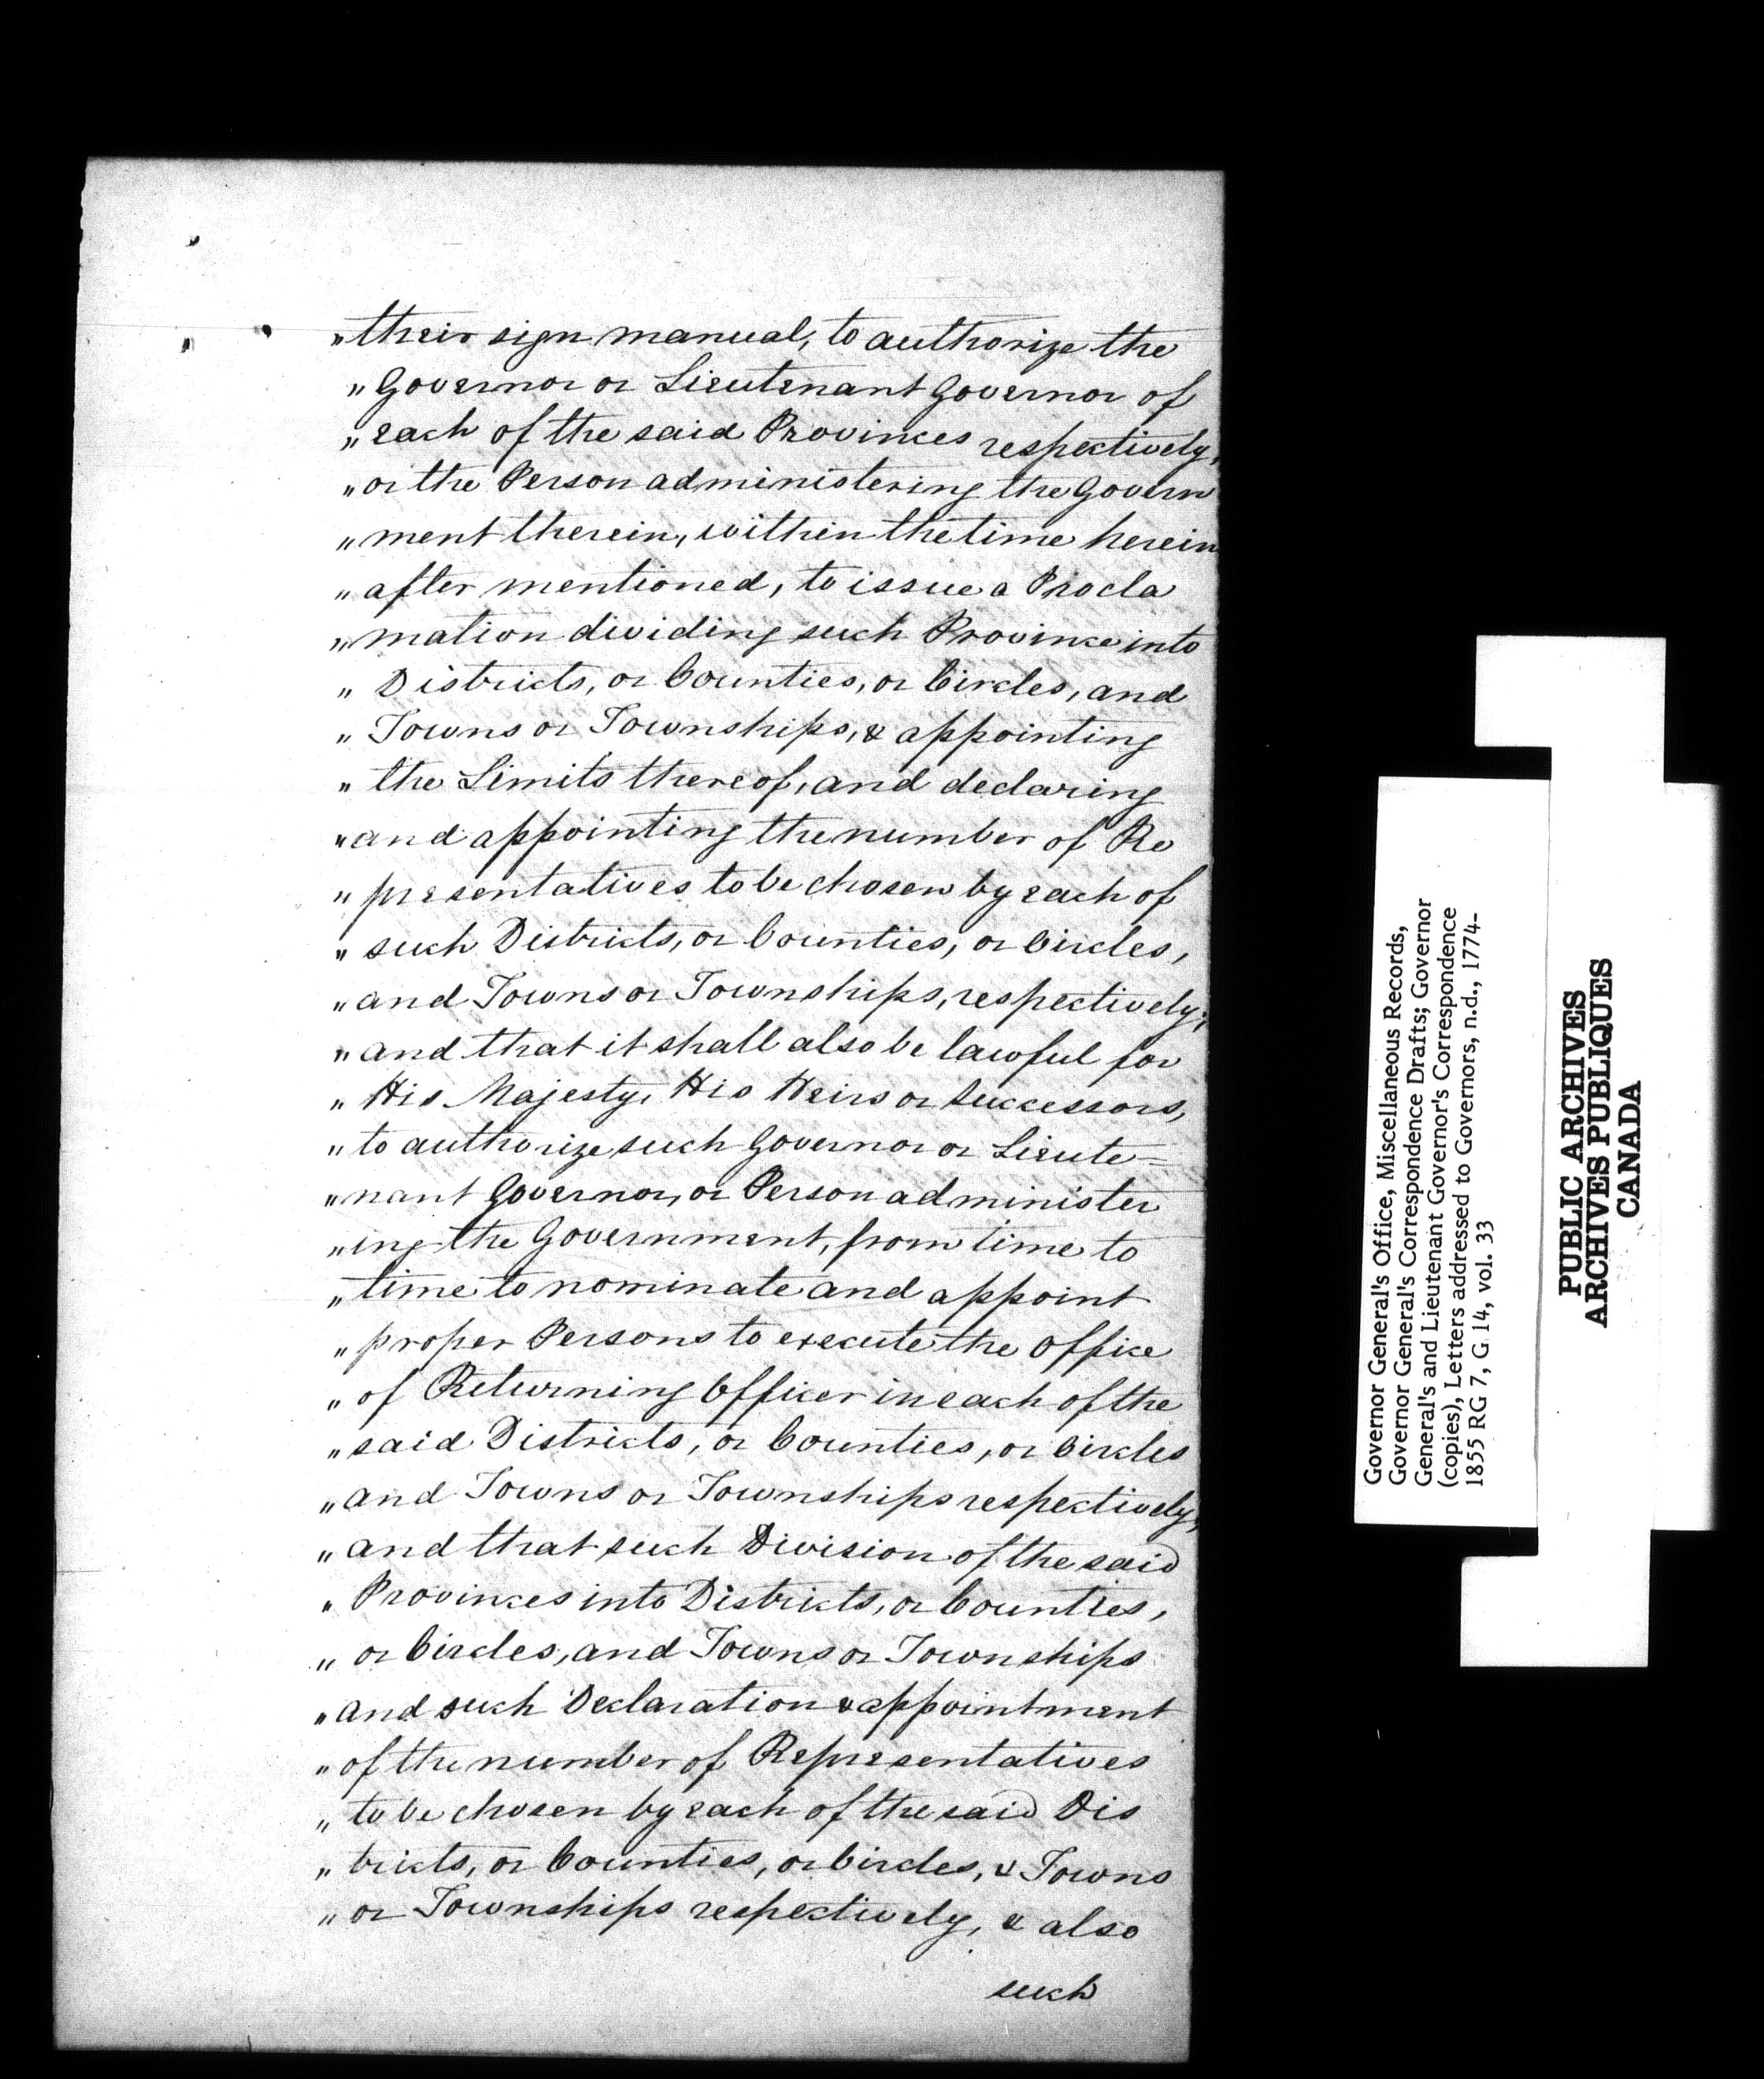 „ their sign manual, to authorize the
„ Governor or Lieutenant Governor of
„ each of the said Provinces respectively,
„ or the Person administering the Govern
„ ment therein, within the time herein
„ after mentioned, to issue a Procla
„ mation dividing such Province into
„ Districts, or Counties, or Circles, and
„ Towns or Townships, & appointing
„ the Limits thereof, and declaring
„ and appointing the number of Re
„ presentatives to be chosen by each of
„ such Districts, or Counties, or Circles,
„ and Towns or Townships, respectively;
„ and that it shall also be lawful for
„ His Majesty, His Heirs or Successors,
„ to authorize such Governor or Lieute=
„ nant Governor, or Person administer
„ ing the Government, from time to
„ time to nominate and appoint
„ proper Persons to execute the Office
„ of Returning Officer in each of the
„ said Districts, or Counties, or Circles
„ and Towns or Townships respectively,
„ and that such Division of the said
„ Provinces into Districts, or Counties,
„ or Circles, and Towns or Townships
„ and such Declaration & appointment
„ of the number of Representatives
„ to be chosen by each of the said Dis
„ tricts, or Counties, or Circles, & Towns
„ or Townships respectively, & also
such
Governor General's Office, Miscellaneous Records,
Governor General's Correspondence Drafts; Governor
General's and Lieutenant Governor's Correspondence
(copies), Letters addressed to Governors, n.d., 1774-
1855 RG 7, G 14, vol. 33
PUBLIC ARCHIVES
ARCHIVES PUBLIQUES
CANADA